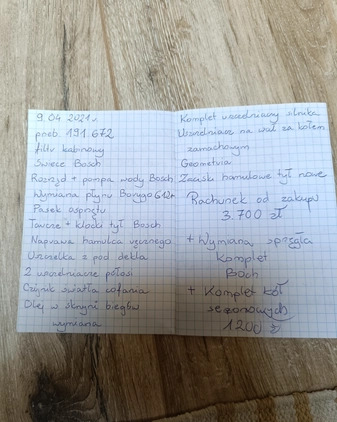 9.04 2021r
przeb. 191.672
filtr kabinowy
Świece Bosch
Rozrząd + pompa wody Bosch
Wymiana płynu Borygo G12+
Pasek osprzętu
Tarcze + klocki tył Bosch
Naprawa hamulca ręcznego
Uszczelka z pod dekla
2 uszczelniacze półosi
Czujnik światła cofania
Olej w skrzyni biegów
wymiana
Komplet uszczelniaczy silnika
Uszczelniacz na wał za kołem
zamachowym
Geometria
Zaciski hamulcowe tył nowe
Rachunek od zakup
3.700 zł
+ Wymiana sprzęgła
Komplet
Boch
+ Komplet kół
sezonowych
1200 zł